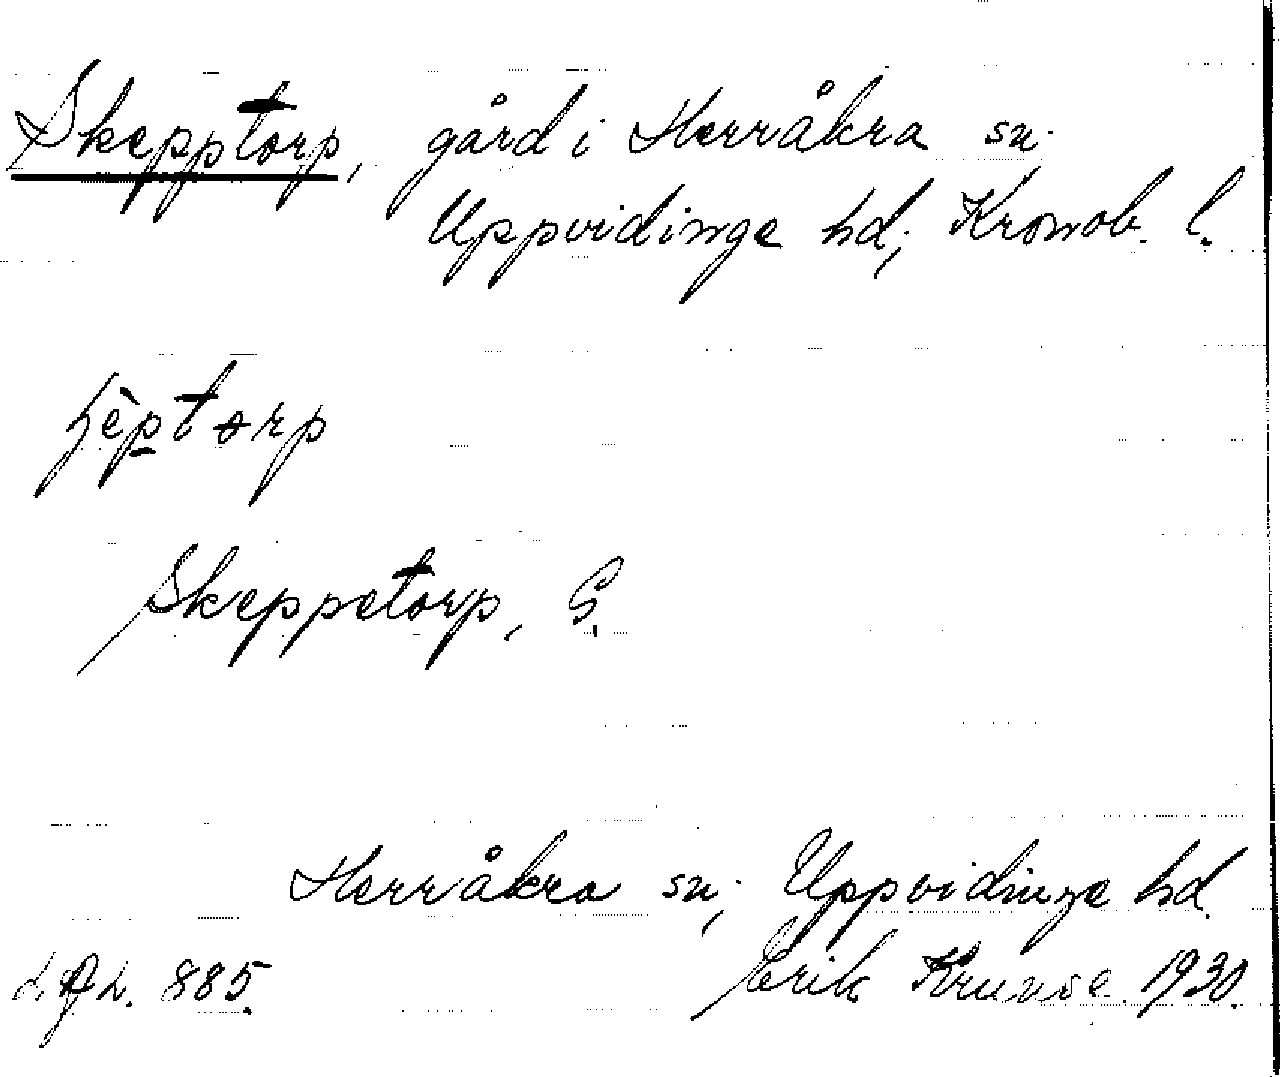 Skepptorp, gård i Herråkra sn.
Uppvidinge hd, Kronob. l.
Skeppetorp, G.
Herråkra sn, Uppvidinge hd.
885. Erik Kruuse 1930.